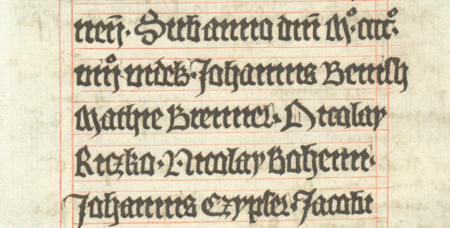 Sub anno dm̄ Mº cccº
videlz Johannis Benish
Mathie Brenner Nicolay
Riczko Nicolay Bohemi
Johannis Czypser Jacobi